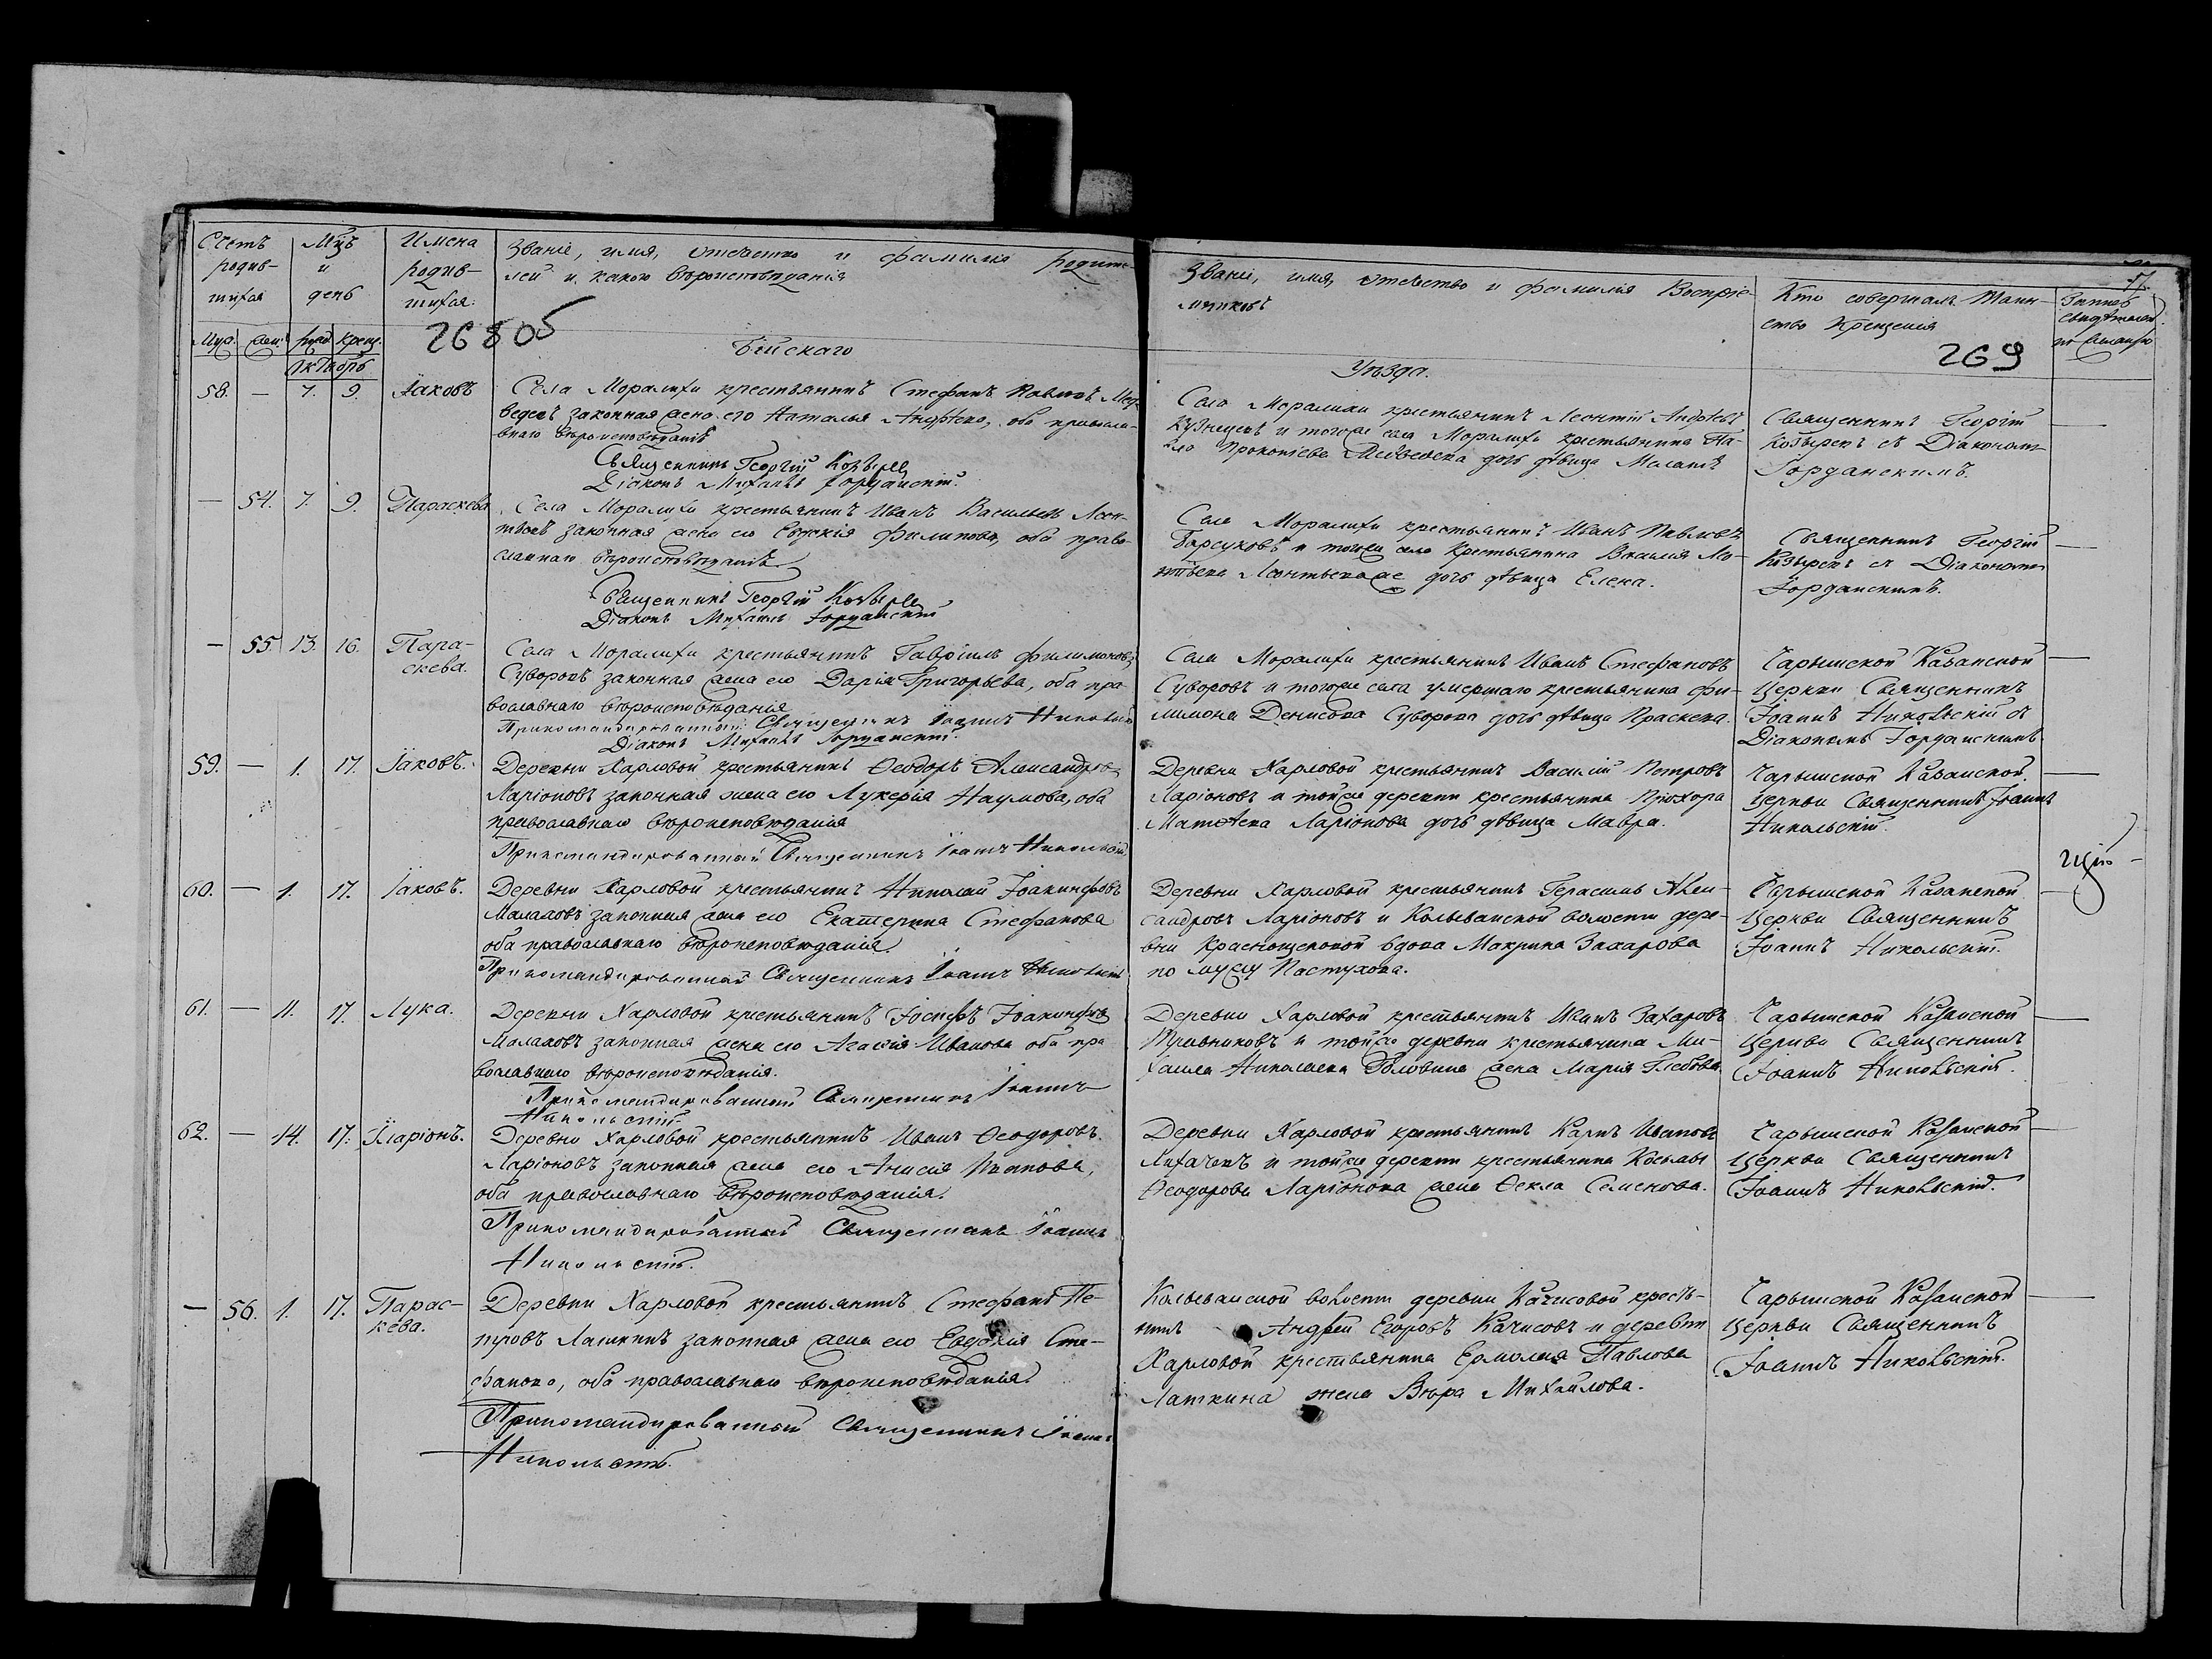 Счетъ родив-
шихся
Мцъ
и
день
Имена
родив-
шихся.
Званіе, имя, отчество и фамилія родите-
лей и какого вѣроисповѣданія
Муж. жен. рожд. крещ.
268об
Бійскаго
Октябрь
58. — 7. 9. Іаковъ
Села Моралихи крестьянинъ Стефанъ Павловъ Мед-
ведевъ законная жена его Наталья Андреева, оба православ-
наго вѣроисповѣданія
Священникъ Георгій Козырев
Діаконъ Михаилъ Іорданскій.
— 54. 7. 9. Параскева
Села Моралихи крестьянинъ Иванъ Васильевъ Леон-
тьевъ законная жена его Евдокія Филипова, оба право-
славнаго вѣроисповѣданія
Священникъ Георгій Козырев
Діаконъ Михаилъ Іорданскій
— 55. 13. 16. Пара-
скева.
Села Моралихи крестьянинъ Гавріилъ Филимоновъ
Суворовъ законная жена его Дарія Григорьева, оба пра-
вославнаго вѣроисповѣданія
Прикомандированный Священникъ Іоаннъ Никольскій
Діаконъ Михаилъ Іорданскій.
59. — 1. 17. Іаковъ.
Деревни Харловой крестьянинъ Ѳеодоръ Александровъ
Ларіоновъ законная жена его Лукерія Наумова, оба
православнаго вѣроисповѣданія
Прикомандированный Священникъ Іоаннъ Никольскій
60. — 1. 17. Іаковъ.
Деревни Харловой крестьянинъ Николай Іоакинфовъ
Малаховъ законная жена его Екатерина Стефанова
оба православнаго вѣроисповѣданія.
Прикомандированный Священникъ Іоаннъ Никольскій
61. — 11. 17. Лука.
Деревни Харловой крестьянинъ Іосифъ Іоакинфовъ
Малаховъ законная жена его Агафія Иванова оба пра
вославнаго вѣроисповѣданія.
Прикомандированный Священникъ Іоаннъ
Никольскій.
62. — 14. 17. Иларіонъ.
Деревни Харловой крестьянинъ Иванъ Ѳеодоровъ
Ларіоновъ законная жена его Анисія Иванова,
оба православнаго вѣроисповѣданія.
Прикомандированный Священникъ Іоаннъ
Никольскій.
— 56. 1. 17. Парас-
кева.
Деревни Харловой крестьянинъ Стефанъ Пе-
тровъ Латкинъ законная жена его Евдокія Сте-
фанова, оба православнаго вѣроисповѣданія.
Прикомандированный Священникъ Іоаннъ
Никольскій.
Званіе, имя, отчество и фамилія Воспріе-
мниковъ
Кто совершалъ Таин-
ство Крещенія
269
Уѣзда.
Села Моралихи крестьянинъ Леонтій Андреевъ
Кузнецовъ и тогоже села Моралихи крестьянина Па-
вла Прокопіева Медведева дочь дѣвица Маланія
Священникъ Георгій
Козыревъ съ Діакономъ
Іорданскимъ.
Села Моралихи крестьянинъ Иванъ Павловъ
Барсуковъ и тогоже села крестьянина Василія
Леонтьева дочь дѣвица Елена.
Священникъ Георгій
Козыревъ съ Діакономъ
Іорданскимъ.
Села Моралихи крестьянинъ Иванъ Стефановъ
Суворовъ и тогоже села умершаго крестьянина Фи-
лимона Денисова Суворова дочь дѣвица Праскева.
Чарышской Казанской
Церкви Священникъ
Іоаннъ Никольскій съ
Діакономъ Іорданскимъ
Деревни Харловой крестьянинъ Василій Петровъ
Ларіоновъ и тойже деревни крестьянина Прохора
Матѳеева Ларіонова дочь дѣвица Мавра.
Чарышской Казанской
Церкви Священникъ Іоаннъ
Никольскій.
Деревни Харловой крестьянинъ Герасимъ Алек-
сандровъ Ларіоновъ и Колыванской волости дере-
вни Краснощековой вдова Макрина Захарова
по мужу Пастухова.
Чарышской Казанской
Церкви Священникъ
Іоаннъ Никольскій.
Деревни Харловой крестьянинъ Иванъ Захаровъ
и тойже деревни крестьянина Ми-
хаила Николаева Головина жена Марія Глебова
Чарышской Казанской
Церкви Священникъ
Іоаннъ Никольскій.
Деревни Харловой крестьянинъ Карпъ Ивановъ
Лихачевъ и тойже деревни крестьянина Космы
Ѳеодорова Ларіонова жена Ѳекла Семенова.
Чарышской Казанской
Церкви Священникъ
Іоаннъ Никольскій.
Колыванской волости деревни Качисовой кресть-
нинъ Андрей Егоровъ Качисовъ и деревни
Харловой крестьянина Ермолая Павлова
Латкина жена Вѣра Михайлова.
Чарышской Казанской
Церкви Священникъ
Іоаннъ Никольскій.